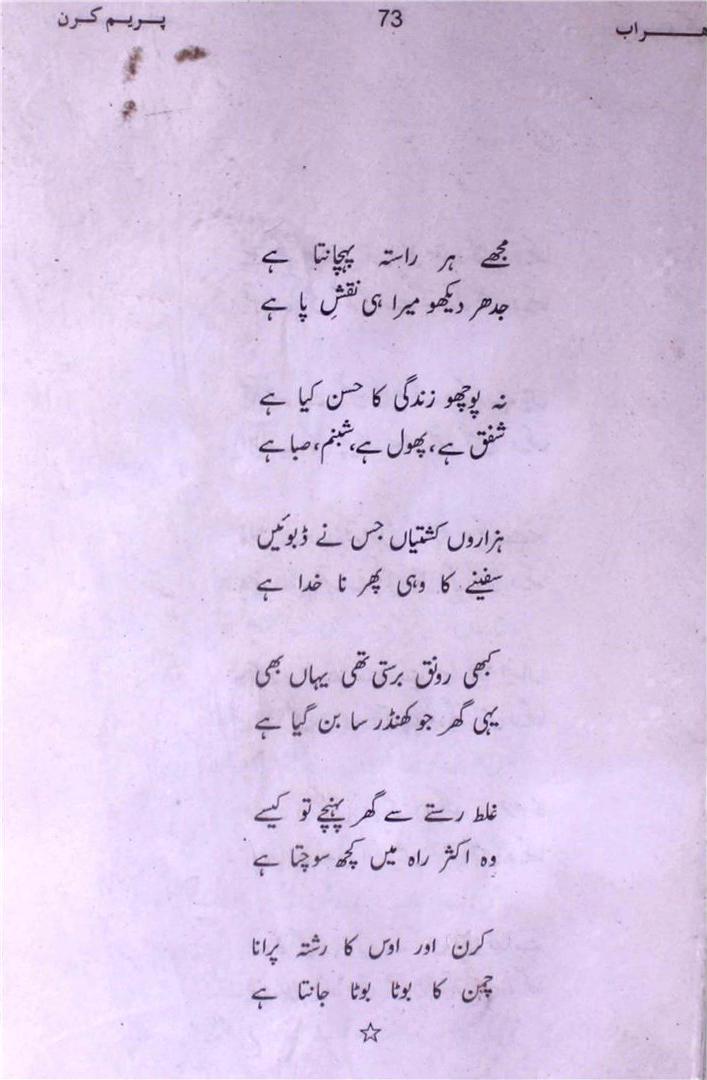 پریم کرن
73
مجھے ہر راستہ پہچانتا ہے
جدھر دیکھو میرا ہی نقشِ پا ہے
نہ پوچھو زندگی کا حسن کیا ہے
شفق ہے، پھول ہے، شبنم، صبا ہے
ہزاروں کشتیاں جس نے ڈبوئیں
سفینے کا وہی پھر نا خدا ہے
کبھی رونق برستی تھی یہاں بھی
یہی گھر جو کھنڈر سا بن گیا ہے
غلط رستے سے گھر پہنچے تو کیسے
وہ اکثر راہ میں کچھ سوچتا ہے
کرن اور اوس کا رشتہ پرانا
چمن کا بوٹا بوٹا جانتا ہے
☆